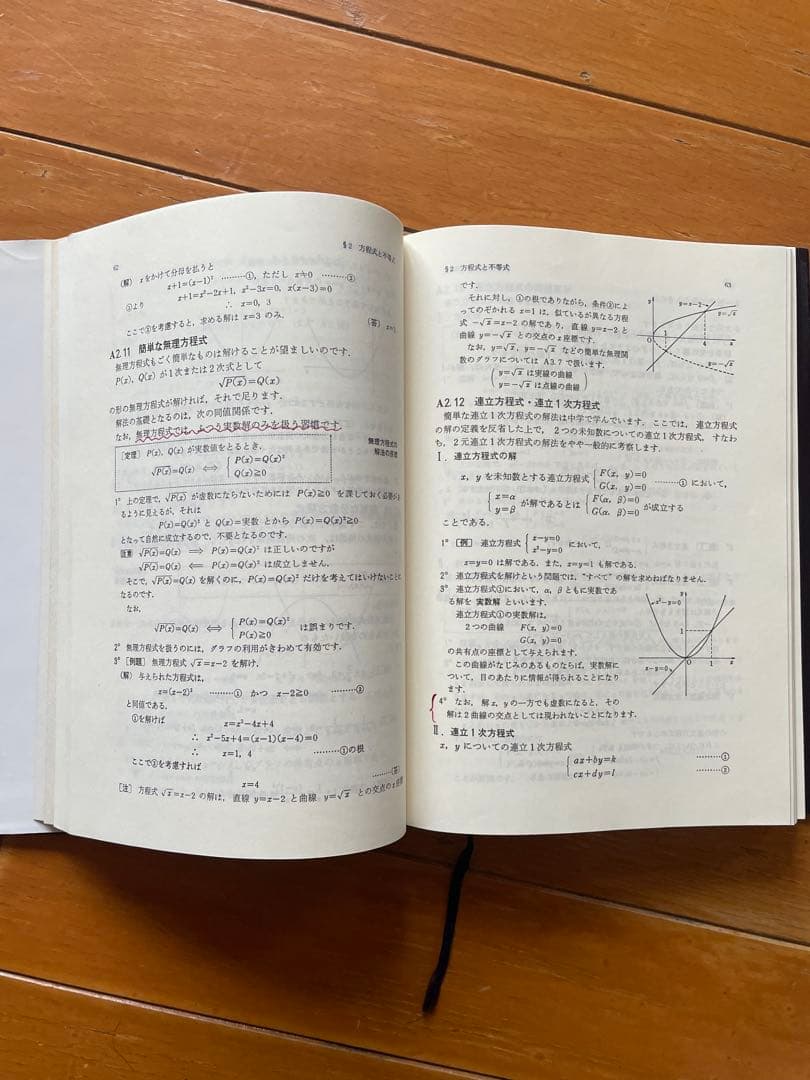 62
§2 方程式と不等式
(解) xをかけて分母を払うと
x+1=(x-1)² ………①, ただし x≠0 ………②
①より x+1=x²-2x+1, x²-3x=0, x(x-3)=0
∴ x=0, 3
ここで②を考慮すると, 求める解は x=3 のみ.
(答) x=3
A2.11 簡単な無理方程式
無理方程式もごく簡単なものは解けることが望ましいのです.
P(x), Q(x) が1次または2次式として
√P(x)=Q(x)
の形の無理方程式が解ければ, それで足ります.
解法の基礎となるのは, 次の同値関係です.
なお, 無理方程式では, ふつう実数解のみを扱う習慣です.
無理方程式の
解法の原理
[定理] P(x), Q(x) が実数値をとるとき,
√P(x)=Q(x) ⟺ { P(x)=Q(x)²
Q(x)≧0
1° 上の定理で, √P(x) が虚数にならないためには P(x)≧0 を課しておく必要が
るように見えるが, それは
P(x)=Q(x)² と Q(x)=実数 とから P(x)=Q(x)²≧0
となって自然に成立するので, 不要となるのです.
注意 √P(x)=Q(x) ⟹ P(x)=Q(x)² は正しいのですが
√P(x)=Q(x) ⟸ P(x)=Q(x)² は成立しません.
そこで, √P(x)=Q(x) を解くのに, P(x)=Q(x)² だけを考えてはいけないことに
なるのです.
なお,
√P(x)=Q(x) ⟺ { P(x)=Q(x)²
P(x)≧0 は誤まりです.
2° 無理方程式を扱うのには, グラフの利用がきわめて有効です.
3° [例題] 無理方程式 √x=x-2 を解け.
(解) 与えられた方程式は,
x=(x-2)² ………① かつ x-2≧0 ………②
と同値である.
①を解けば
x=x²-4x+4
∴ x²-5x+4=(x-1)(x-4)=0
∴ x=1, 4 ………①の根
ここで②を考慮すれば
x=4 ………(答)
[注] 方程式 √x=x-2 の解は, 直線 y=x-2 と曲線 y=√x との交点のx座標
§2 方程式と不等式
63
です.
それに対し, ①の根でありながら, 条件②によ
ってのぞかれる x=1 は, 似ているが異なる方程
式 -√x=x-2 の解であり, 直線 y=x-2 と
曲線 y=-√x との交点のx座標です.
なお, y=√x, y=-√x などの簡単な無理関
数のグラフについては A3.7 で扱います.
( y=√x は実線の曲線
y=-√x は点線の曲線 )
y
y=x-2
y=√x
0
1
4
x
y=-√x
A2.12 連立方程式・連立1次方程式
簡単な連立1次方程式の解法は中学で学んでいます. ここでは, 連立方程式
の解の定義を反省した上で, 2つの未知数についての連立1次方程式, すなわ
ち, 2元連立1次方程式の解法をやや一般的に考察します.
I. 連立方程式の解
x, y を未知数とする連立方程式 { F(x, y)=0
G(x, y)=0 ………① において,
{ x=α
y=β が解であるとは { F(α, β)=0
G(α, β)=0 が成立する
ことである.
1° [例] 連立方程式 { x-y=0
x²-y=0 において,
x=y=0 は解である. また, x=y=1 も解である.
2° 連立方程式を解けという問題では, "すべて" の解を求めねばなりません.
3° 連立方程式①において, α, β ともに実数であ
る解を 実数解 といいます.
連立方程式①の実数解は,
2つの曲線 F(x, y)=0
G(x, y)=0
の共有点の座標として与えられます.
この曲線がなじみのあるものならば, 実数解に
ついて, 目のあたりに情報が得られることになり
ます.
y
x²-y=0
1
x-y=0
0
1
x
4° なお, 解 x, y の一方でも虚数になると, その
解は2曲線の交点としては現われないことになります.
II. 連立1次方程式
x, y についての連立1次方程式
{ ax+by=k ………①
cx+dy=l ………②